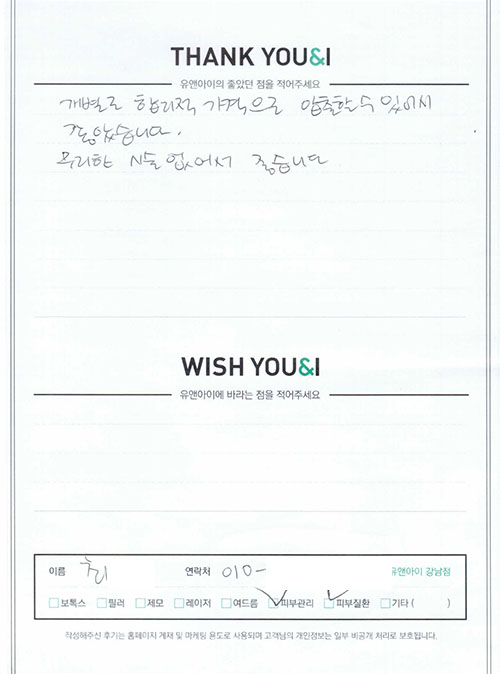 THANK YOU&I
유앤아이의 좋았던 점을 적어주세요
개별로 합리적 가격으로 압출할 수 있어서
좋았습니다.
무리한 시술 없어서 좋습니다
WISH YOU&I
유앤아이에 바라는 점을 적어주세요
이름 연락처 010- 유앤아이 강남점
보톡스 필러 제모 레이저 여드름 피부관리 피부질환 기타 ( )
작성해주신 후기는 홈페이지 게재 및 마케팅 용도로 사용되며 고객님의 개인정보는 일부 비공개 처리로 보호됩니다.